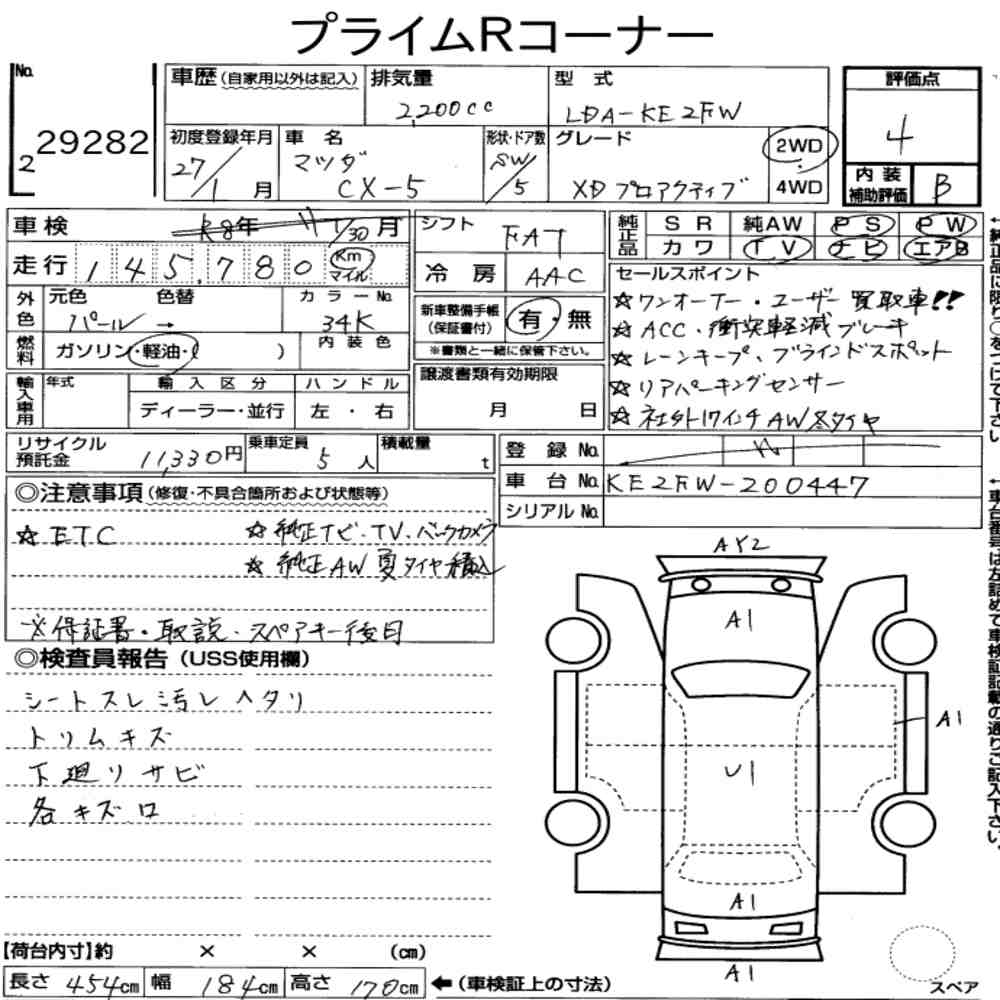 プライムRコーナー
No.
2 29282
車歴 (自家用以外は記入) 排気量 型式
2,200cc LDA-KE2FW
初度登録年月 車名 形状・ドア数 グレード
27/1月 マツダ CX-5 SW/5 XD プロアクティブ 2WD・4WD
評価点
4
内装補助評価 B
車検 R8年 11/30月
走行 145,780 Km マイル
外色 元色 色替 カラーNo.
パール → 34K
燃料 ガソリン・軽油・( ) 内装色
輸入車用 年式 輸入区分 ハンドル
ディーラー・並行 左・右
シフト FAT
冷房 AAC
新車整備手帳(保証書付) 有・無
※書類と一緒に保管下さい。
譲渡書類有効期限
月 日
純正品 SR 純AW PS PW
カワ TV ナビ エアB
セールスポイント
☆ワンオーナー・ユーザー買取車!!
☆ACC・衝突軽減ブレーキ
☆レーンキープ、ブラインドスポット
☆リアパーキングセンサー
☆社外17インチAW冬タイヤ
リサイクル預託金 11,330円 乗車定員 5人 積載量 t
登録No.
車台No. KE2FW-200447
シリアルNo.
◎注意事項(修復・不具合箇所および状態等)
☆ETC ☆純正ナビ・TV、バックカメラ
☆純正AW夏タイヤ積込
※保証書・取説・スペアキー後日
◎検査員報告(USS使用欄)
シートスレ汚レヘタリ
トリムキズ
下廻リサビ
各キズロ
AY2
A1
A1
U1
A1
A1
【荷台内寸】約 × × (cm)
長さ 454cm 幅 184cm 高さ 170cm ←(車検証上の寸法)
スペア
←純正品に限り○をつけて下さい。
←車台番号は左詰めて車検証記載の通りご記入下さい。